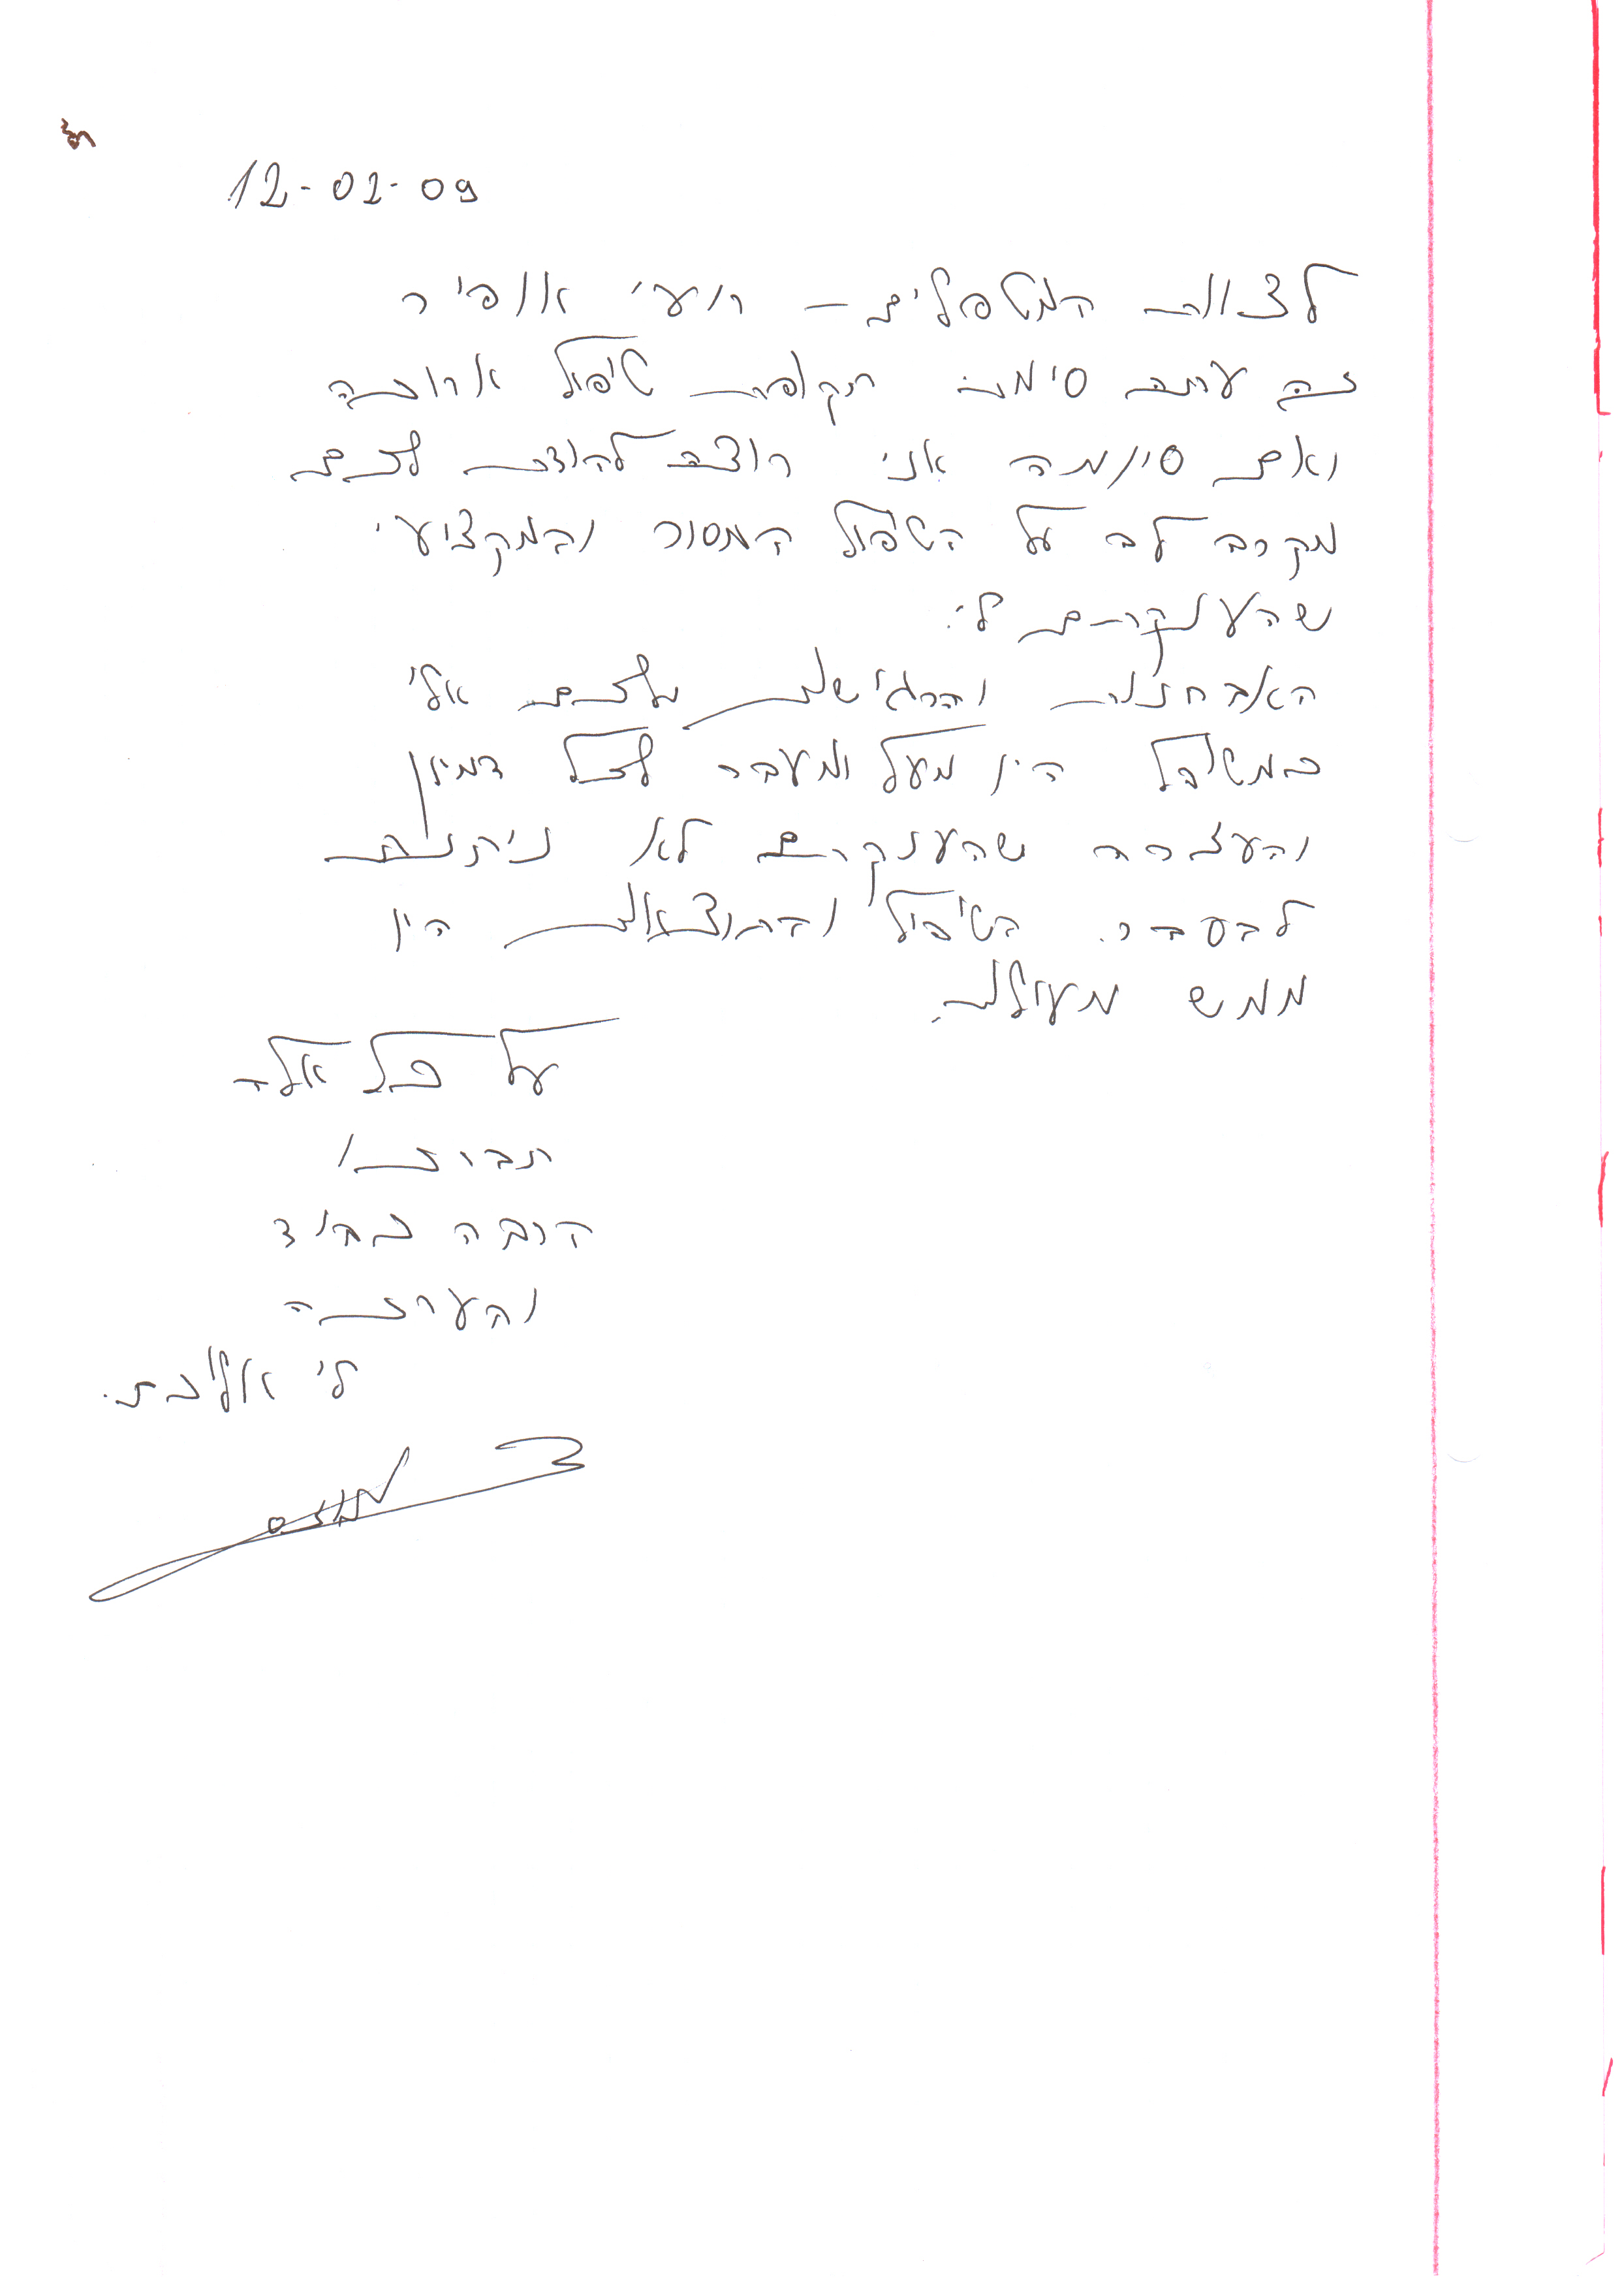 12-02-09
לצוות המטפלים – רועי אופיר
זה עתה סימתי תקופת טיפול ארוכה
ואם סיומה אני רוצה להודות לכם
מקרב לב על הטיפול המסור והמקצועי
שהענקתם לי.
האבחנות והרגישות שלכם אלי
כמטופל היו מעל ומעבר לכל דמיון
והעזרה שהענקתם לא ניתנת
להסבר. הטיפול והתוצאות היו
ממש מעולות.
על כל אלה
תבורכו
הרבה כבוד
והערכה
לי אליכם.